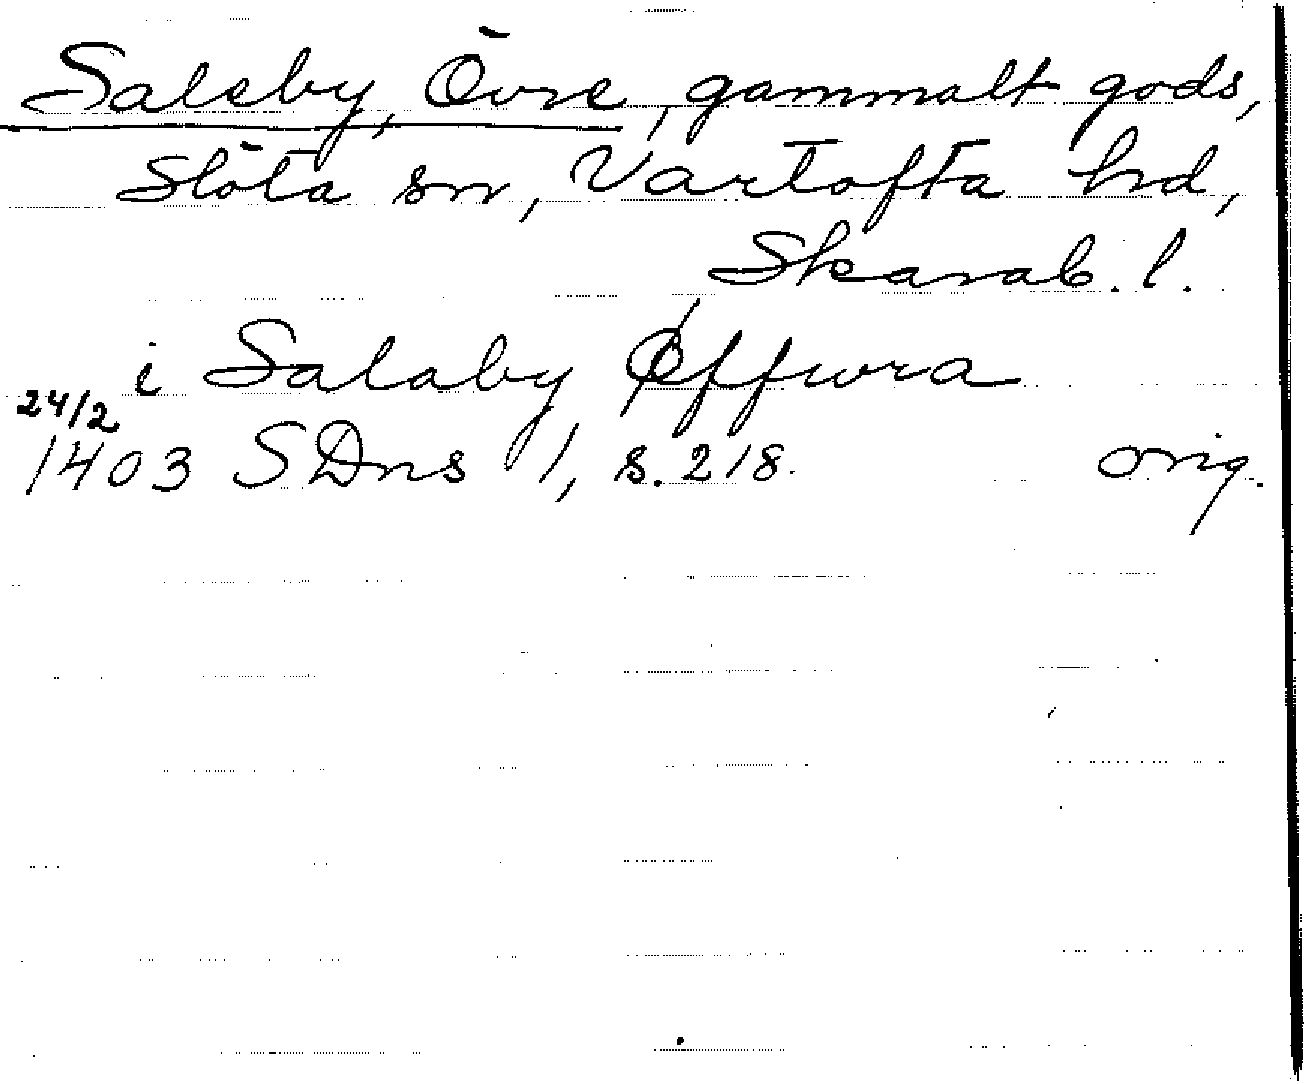 Saleby, Övre, gammalt gods,
Slöta sn, Vartofta hd,
Skarab. l.
i Salaby Øffwra
24/2
1403 SDns 1, s. 218. orig.